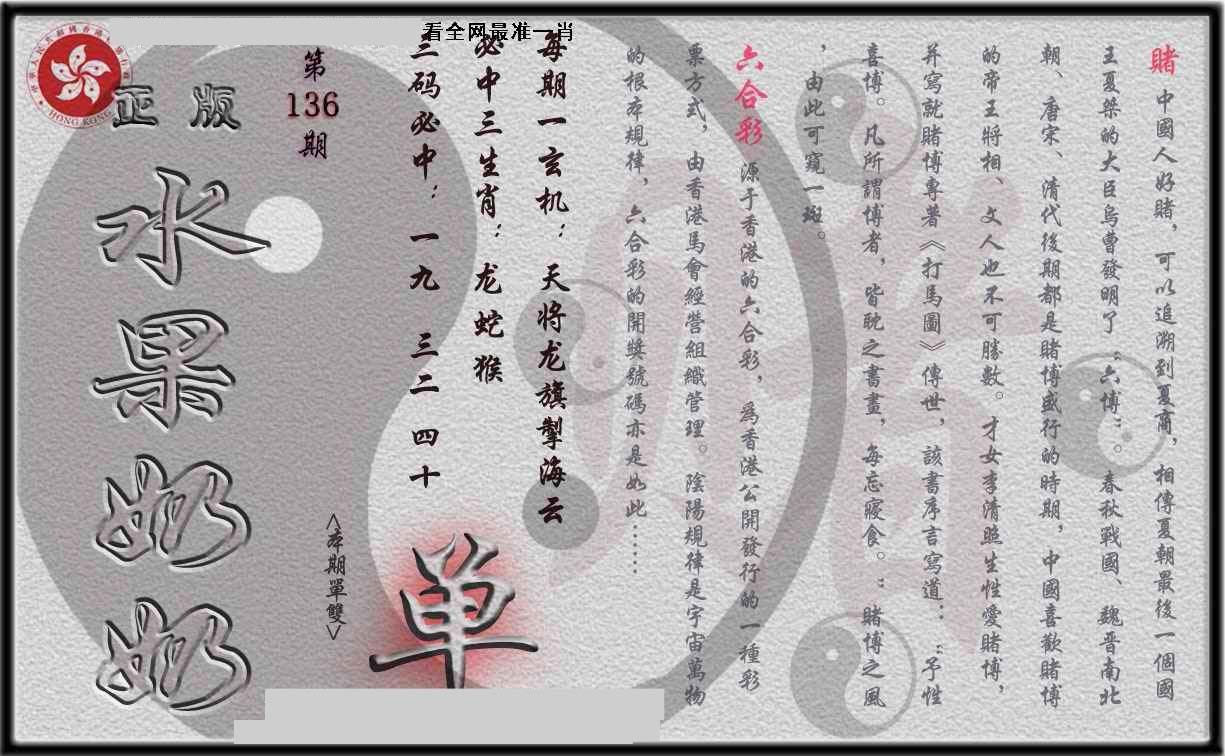 看全网最准一肖
賭 中國人好賭，可以追溯到夏商，相傳夏朝最後一個國
王夏桀的大臣烏曹發明了“六博”。春秋戰國、魏晋南北
朝、唐宋、清代後期都是賭博盛行的時期，中國喜歡賭博
的帝王將相、文人也不可勝數。才女李清照生性愛賭博，
并寫就賭博專著《打馬圖》傳世，該書序言寫道：“予性
喜博。凡所謂博者，皆耽之書畫，每忘寢食。”賭博之風
，由此可窺一斑。
六合彩 源于香港的六合彩，爲香港公開發行的一種彩
票方式，由香港馬會經營組織管理。陰陽規律是宇宙萬物
的根本規律，六合彩的開獎號碼亦是如此……
每期一玄机：天将龙旗掣海云
必中三生肖：龙蛇猴
三码必中：一九 三二 四十
第
136
期
<本期單雙>
单
正版
水果奶奶
HONG KONG